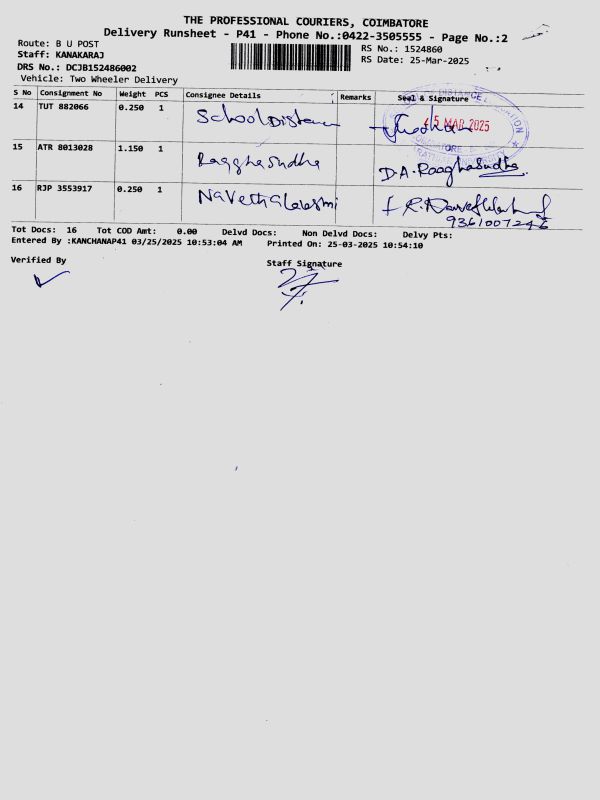 THE PROFESSIONAL COURIERS, COIMBATORE
Delivery Runsheet - P41 - Phone No.:0422-3505555 - Page No.:2
Route: B U POST
RS No.: 1524860
Staff: KANAKARAJ
RS Date: 25-Mar-2025
DRS No.: DCJB152486002
Vehicle: Two Wheeler Delivery
S No Consignment No Weight PCS Consignee Details Remarks Seal & Signature
14 TUT 882066 0.250 1 School Distan
MAR 2025
15 ATR 8013028 1.150 1 Ragghasudha D.A. Raaghasudha
16 RJP 3553917 0.250 1 Navethalaksmi
9361007246
Tot Docs: 16 Tot COD Amt: 0.00 Delvd Docs: Non Delvd Docs: Delvy Pts:
Entered By :KANCHANAP41 03/25/2025 10:53:04 AM Printed On: 25-03-2025 10:54:10
Verified By
Staff Signature